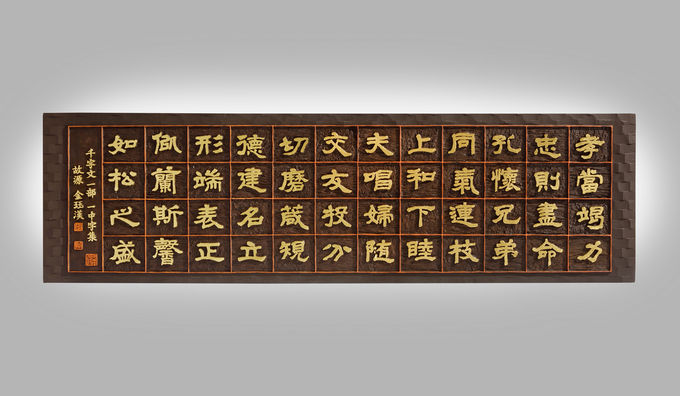 孝當竭力
忠則盡命
孔懷兄弟
同氣連枝
上和下睦
夫唱婦随
交友投分
切磨箴規
德建名立
形端表正
似蘭斯馨
如松之盛
千字文一部 一中字集
故源 金珏漢